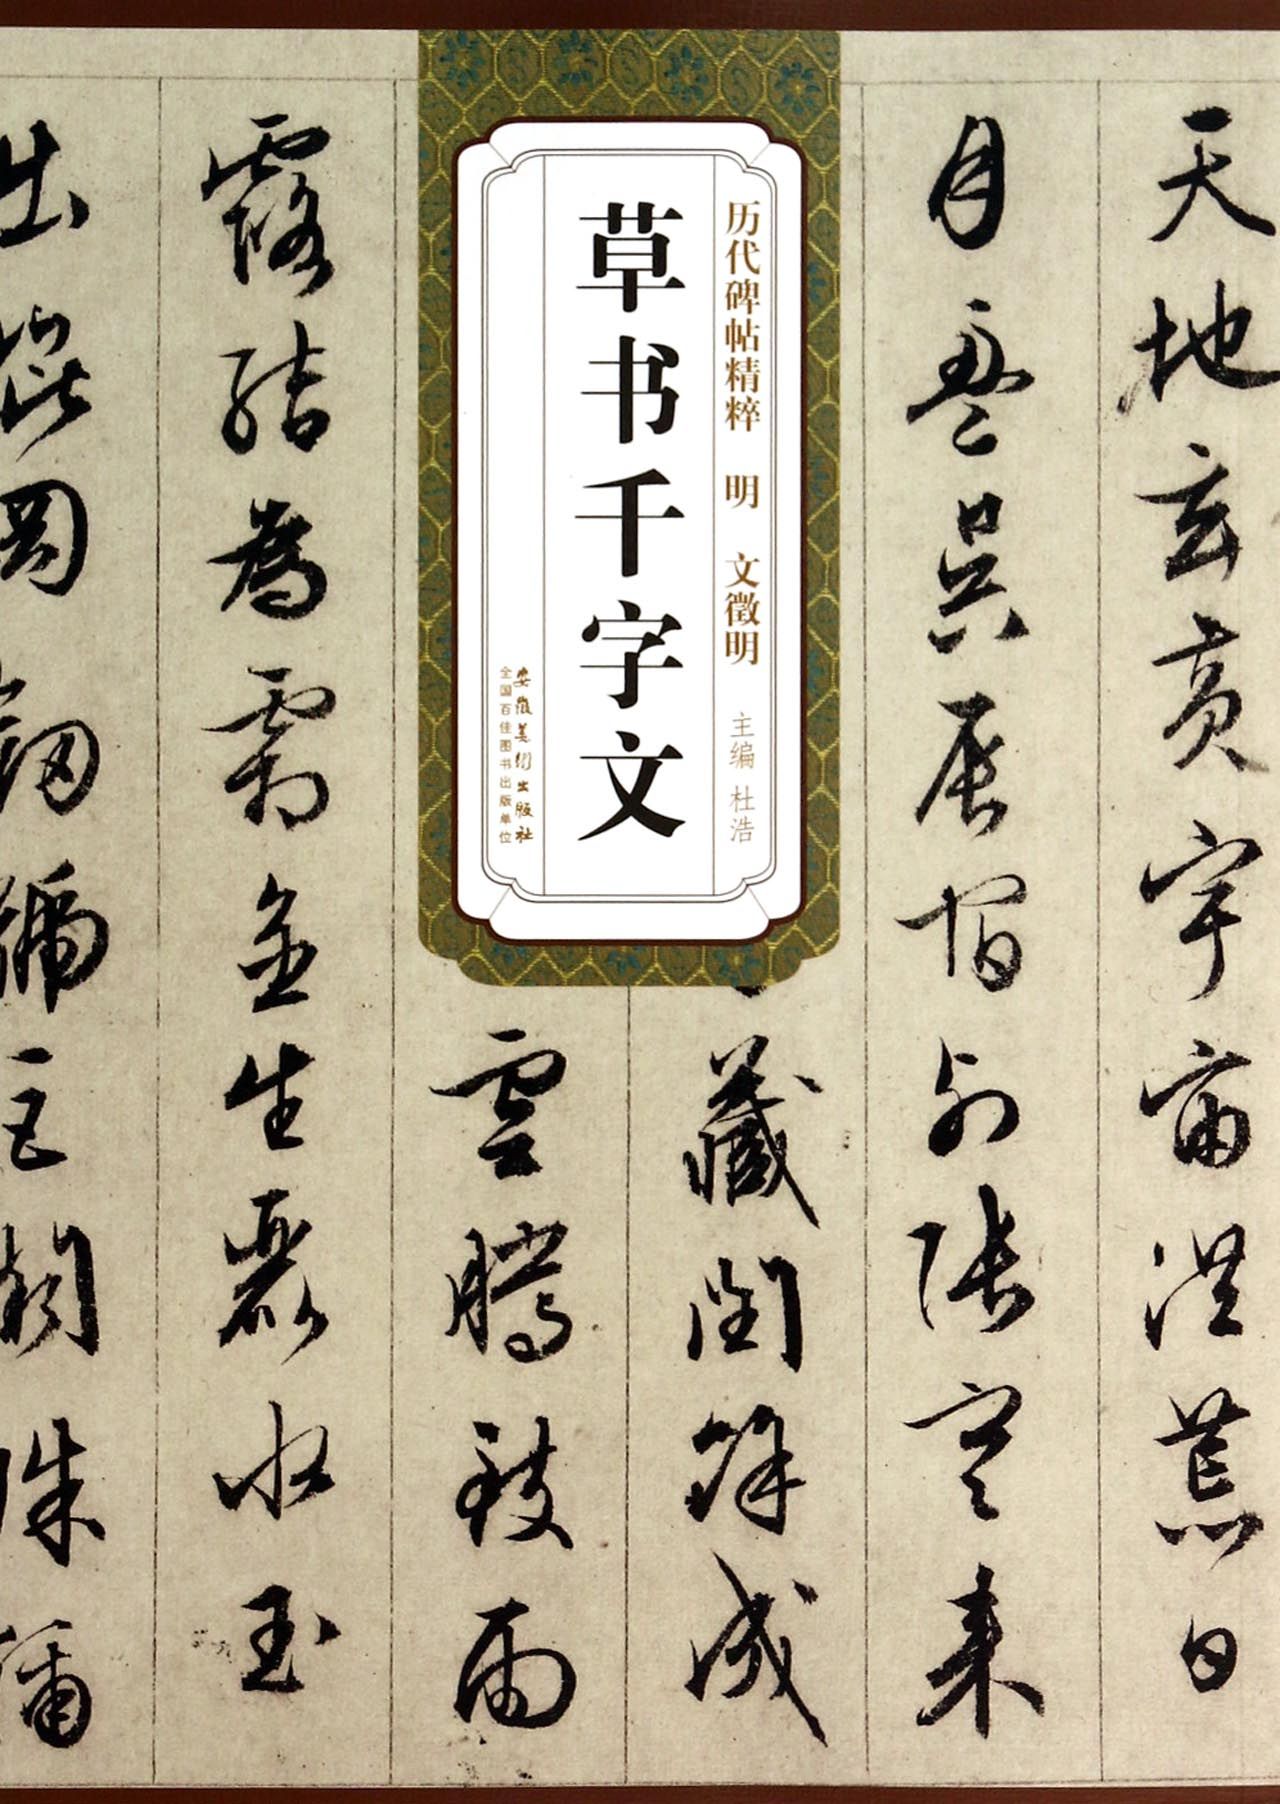 历代碑帖精粹 明 文徵明 主编 杜浩
草书千字文
安徽美术出版社
全国百佳图书出版单位
天地玄黄宇宙洪荒日
月盈昃辰宿列張寒来
藏閏餘成
雲騰致雨
露結為霜金生麗水玉
出崐岡劔號巨闕珠稱